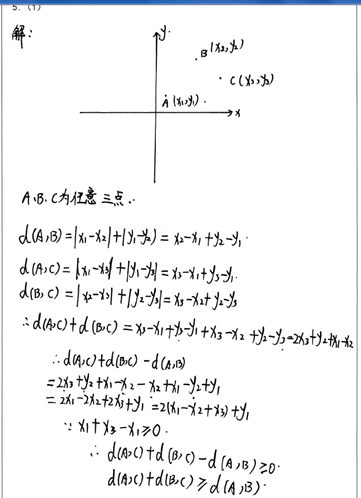 5. (1)
解:
y
B (x₂, y₂)
C (x₃, y₃)
A (x₁, y₁)
x
A、B、C为任意三点.
d(A,B)=|x₁-x₂|+|y₁-y₂|=x₂-x₁+y₂-y₁.
d(A,C)=|x₁-x₃|+|y₁-y₃|=x₃-x₁+y₃-y₁.
d(B,C)=|x₂-x₃|+|y₂-y₃|=x₃-x₂+y₂-y₃
∴d(A,C)+d(B,C)=x₃-x₁+y₃-y₁+x₃-x₂+y₂-y₃=2x₃+y₂+x₁-x₂
∴d(A,C)+d(B,C)-d(A,B)
=2x₃+y₂+x₁-x₂-x₂+x₁-y₂+y₁
=2x₁-2x₂+2x₃+y₁=2(x₁-x₂+x₃)+y₁
∵x₁+x₃-x₁≥0.
∴d(A,C)+d(B,C)-d(A,B)≥0.
d(A,C)+d(B,C)≥d(A,B).